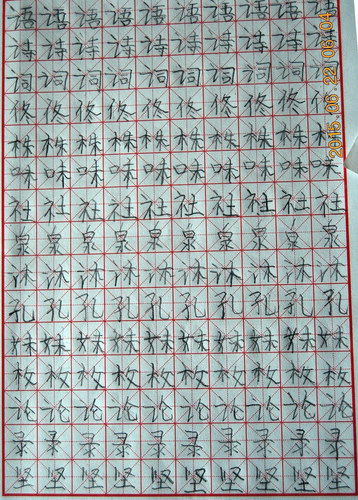 语语语语语语语语语语
诗诗诗诗诗诗诗诗诗诗
词词词词词词词词词词
佟佟佟佟佟佟佟佟佟佟
株株株株株株株株株株
味味味味味味味味味味
社社社社社社社社社社
泉泉泉泉泉泉泉泉泉泉
沐沐沐沐沐沐沐沐沐沐
孔孔孔孔孔孔孔孔孔孔
妹妹妹妹妹妹妹妹妹妹
枚枚枚枚枚枚枚枚枚枚
论论论论论论论论论论
录录录录录录录录录录
坚坚坚坚坚坚坚坚坚坚